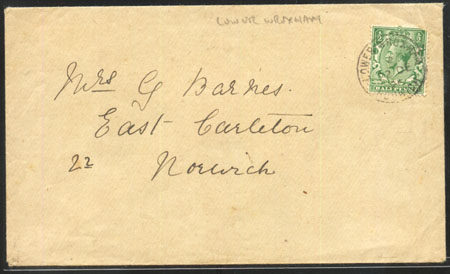 LOWER WROXHAM
LOWER
HALFPENNY
Mrs G Barnes.
East Carleton
22 Norwich